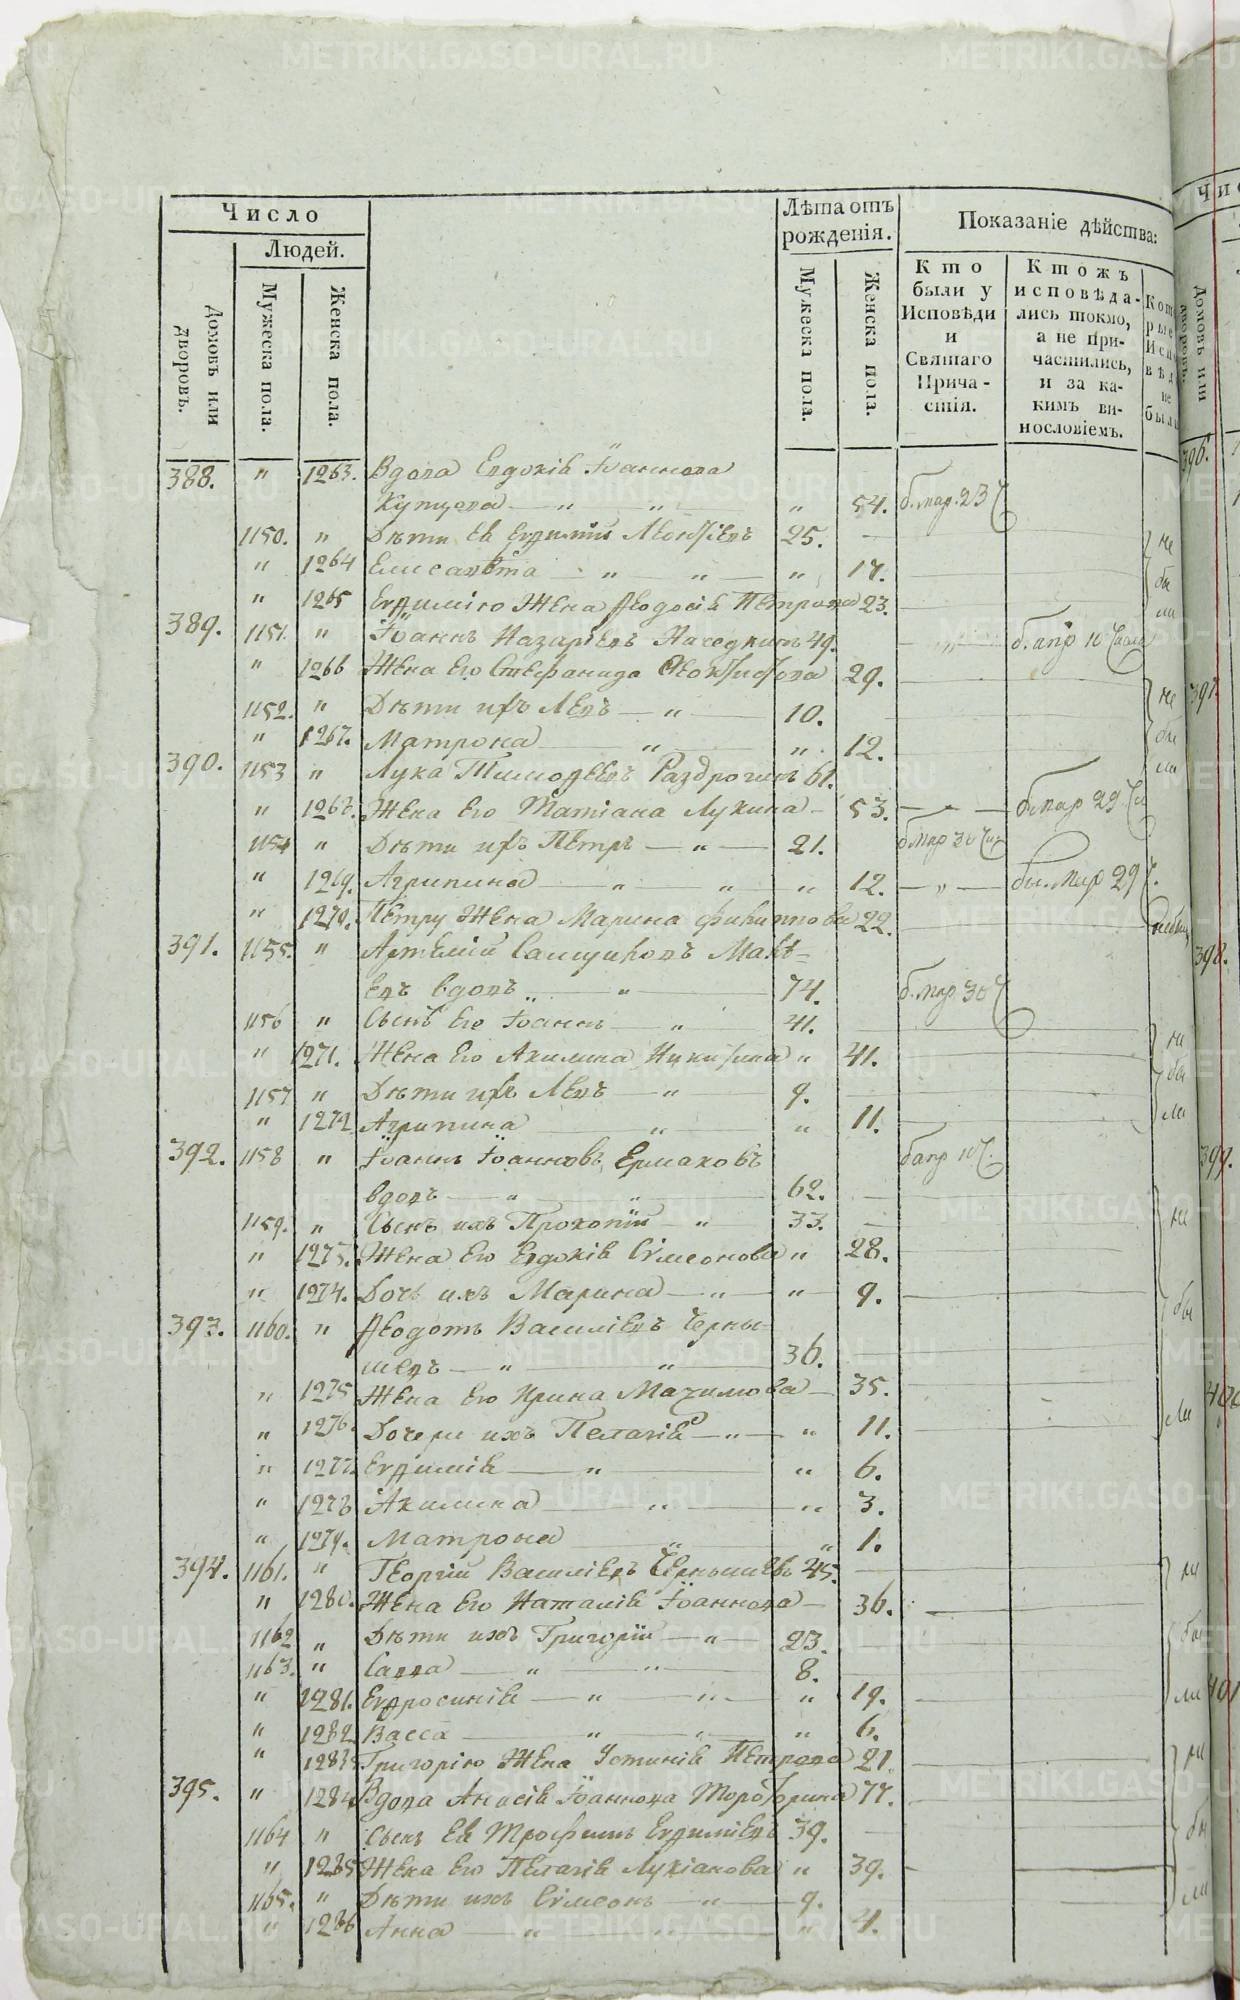 Число
Людей.
Домовъ или дворовъ.
Мужеска пола.
Женска пола.
Лѣта отъ рожденія.
Мужеска пола.
Женска пола.
Показаніе дѣйства:
Кто были у Исповѣди и Святаго Прича-стія.
Ктожъ исповѣда-лись токмо, а не при-частились, и за ка-кимъ ви-нословіемъ.
388. " 1263. Вдова Евдокія Іоаннова
Купцова " " " 54. б. мар. 23 Ч
1150. " Дѣти Ея Евѳимій Леонтіевъ 25.
" 1264 Елисавета " " " 17.
" 1265 Евѳимію Жена Ѳеодосія Петрова 23.
389. 1151. " Іоаннъ Назаріевъ Находкинъ 49. б. апр 10 Числа
" 1266 Жена Его Стефанида Ѳеоктистова 29.
1152. " Дѣти ихъ Левъ " 10.
" 1267. Матрона " " 12.
390. 1153 " Лука Тимоѳеевъ Раздрогинъ 61.
" 1268. Жена Его Татіана Лукина 53. б. мар 29 Чи
1154 " Дѣти ихъ Петръ " 21. б мар 30 Чис
" 1269. Агрипина " " " 12. " бы. мар 29 Ч.
" 1270. Петру Жена Марина Филиппова 22.
391. 1155. " Артемій Самцуковъ Макѣ-
евъ вдовъ " 74. б. мар 30 Ч
1156 " Сынъ Его Іоаннъ " 41.
" 1271. Жена Его Акилина Никитина " 41.
1157 " Дѣти ихъ Левъ " 9.
" 1272 Агрипина " " 11.
392. 1158 " Іоаннъ Іоанновъ Ермаковъ б апр 10 Ч.
вдовъ " " 62.
1159. " Сынъ ихъ Прокопій " 33.
" 1273. Жена Его Евдокія Сімеонова " 28.
" 1274. Дочь ихъ Марина " " 9.
393. 1160. " Ѳеодотъ Василіевъ Черны-
шевъ " " 36.
" 1275 Жена Его Ирина Максимова 35.
" 1276. Дочери ихъ Пелагія " " 11.
" 1277. Евѳимія " " 6.
" 1278 Акилина " " 3.
" 1279. Матрона " " 1.
394. 1161. " Георгій Василіевъ Чернышевъ 45.
" 1280. Жена Его Наталія Іоаннова 36.
1162 " Дѣти ихъ Григорій " 23.
1163. " Савва " " 8.
" 1281. Евфросинія " " " 19.
" 1282 Васса " " " 6.
" 1283 Григорію Жена Устинія Петрова 21.
395. " 1284 Вдова Анисія Іоаннова 77.
1164 " Сынъ Ея Трофимъ Евѳиміевъ 39.
" 1285 Жена Его Пелагія Лукіанова " 39.
1165. " Дѣти ихъ Сімеонъ " 9.
" 1286 Анна " " " 4.
не
бы
ли
396.
397.
398.
399.
400
401
METRIKI.GASO-URAL.RU